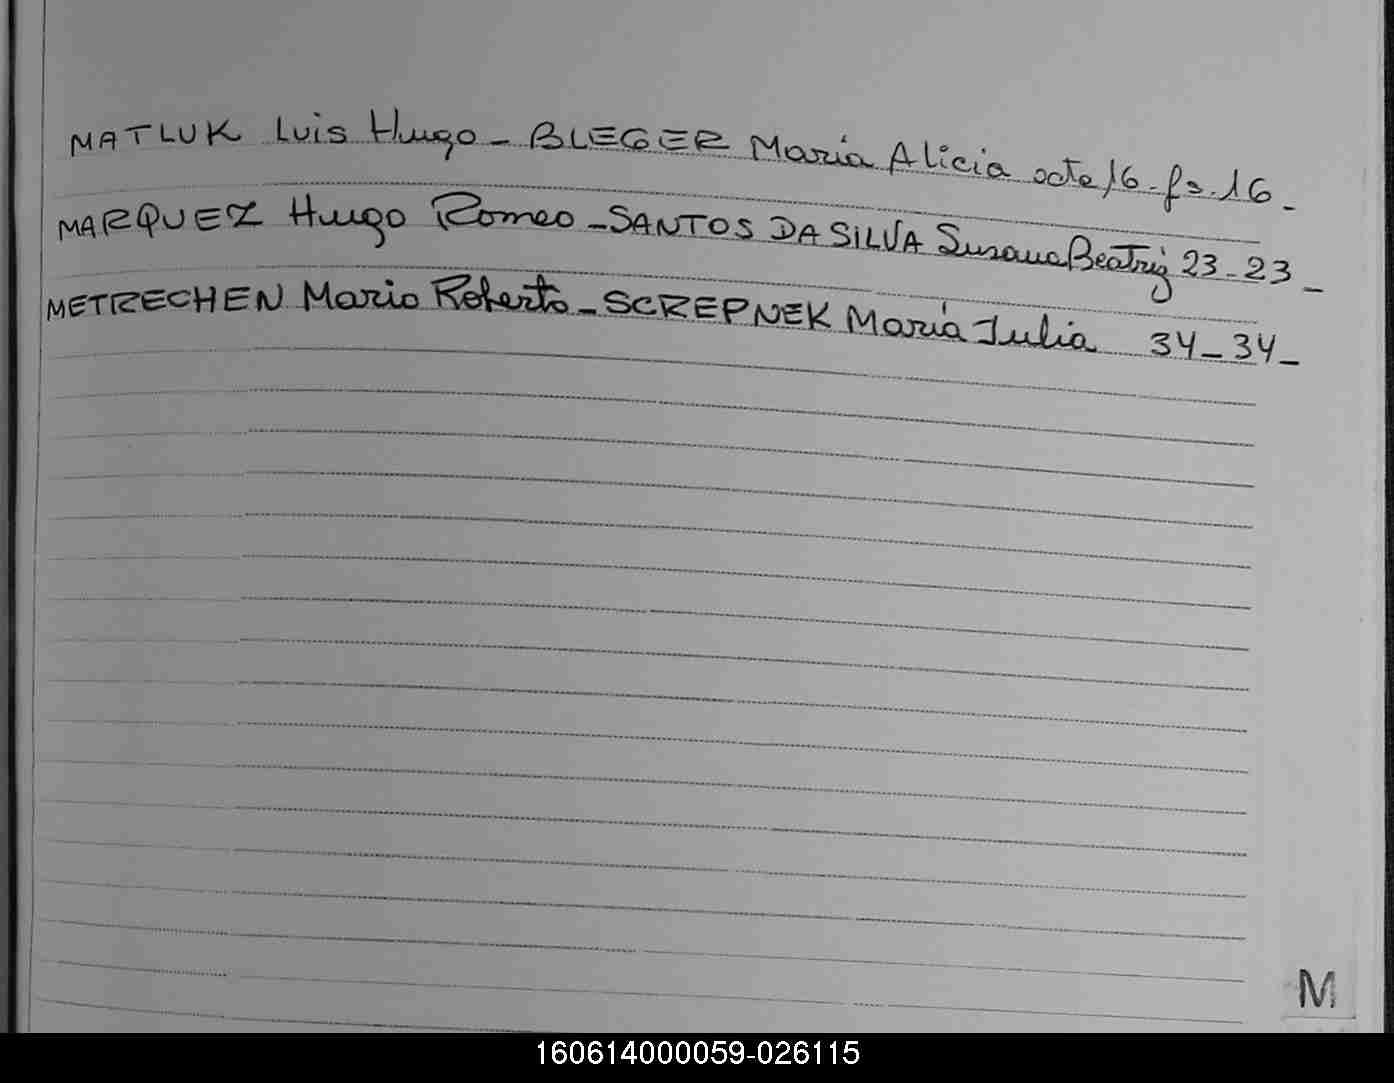 MATLUK Luis Hugo - BLEGER María Alicia acta 16 - fs. 16 -
MARQUEZ Hugo Romeo - SANTOS DA SILVA Susana Beatriz 23 - 23 -
METRECHEN Mario Roberto - SCREPNEK María Julia 34 - 34 -
M
160614000059-026115